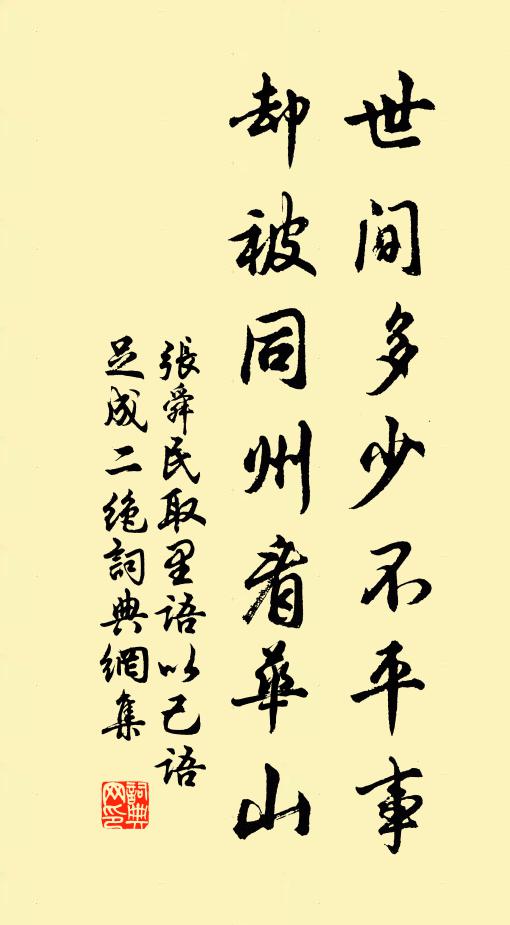 世间多少不平事
却被同州看華山
張舜民取里語以己語
足成二绝詞典網集
詞典网印